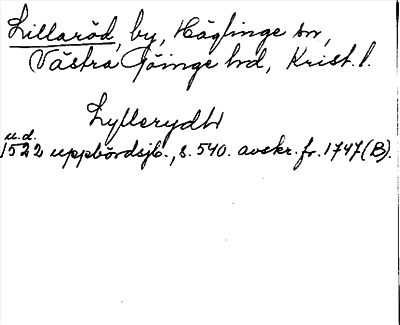 Lillaröd, by, Häglinge sn,
Västra Göinge hd, Krist. l.
Lyllerydh
u.d.
1522 uppbördsjb., s. 540. avskr. fr. 1747 (B).